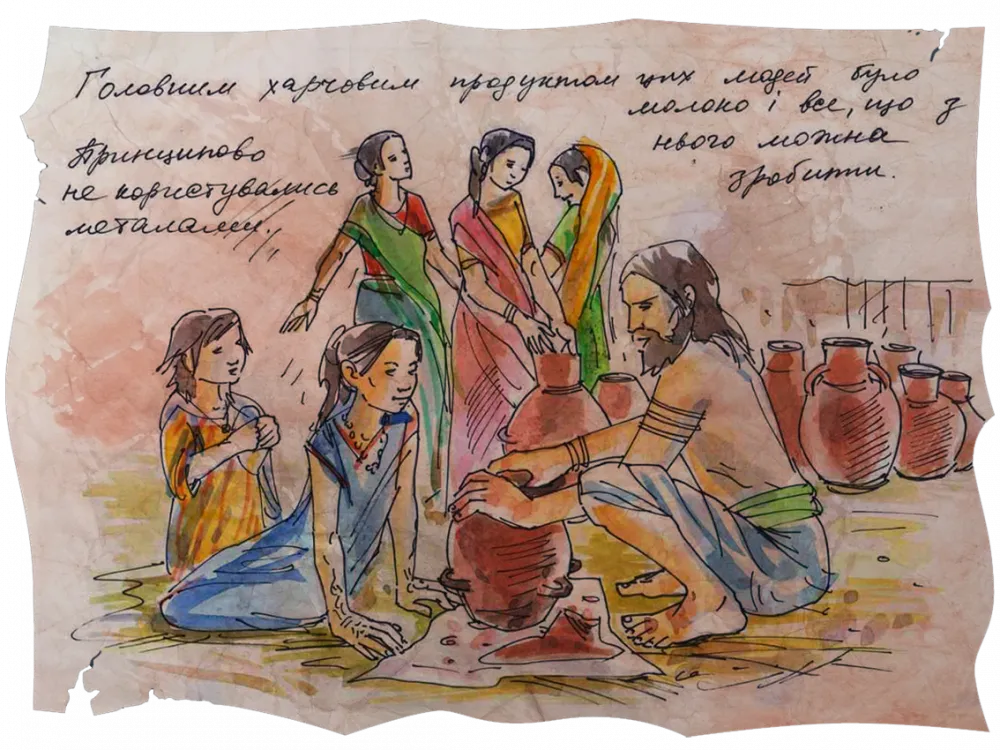 Головним харчовим продуктом цих людей було
молоко і все, що з
нього можна
зробити.
Принципово
не користувались
металами.